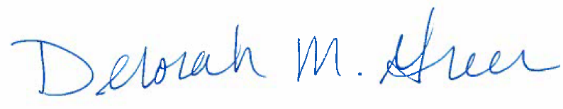 Deborah M. Green